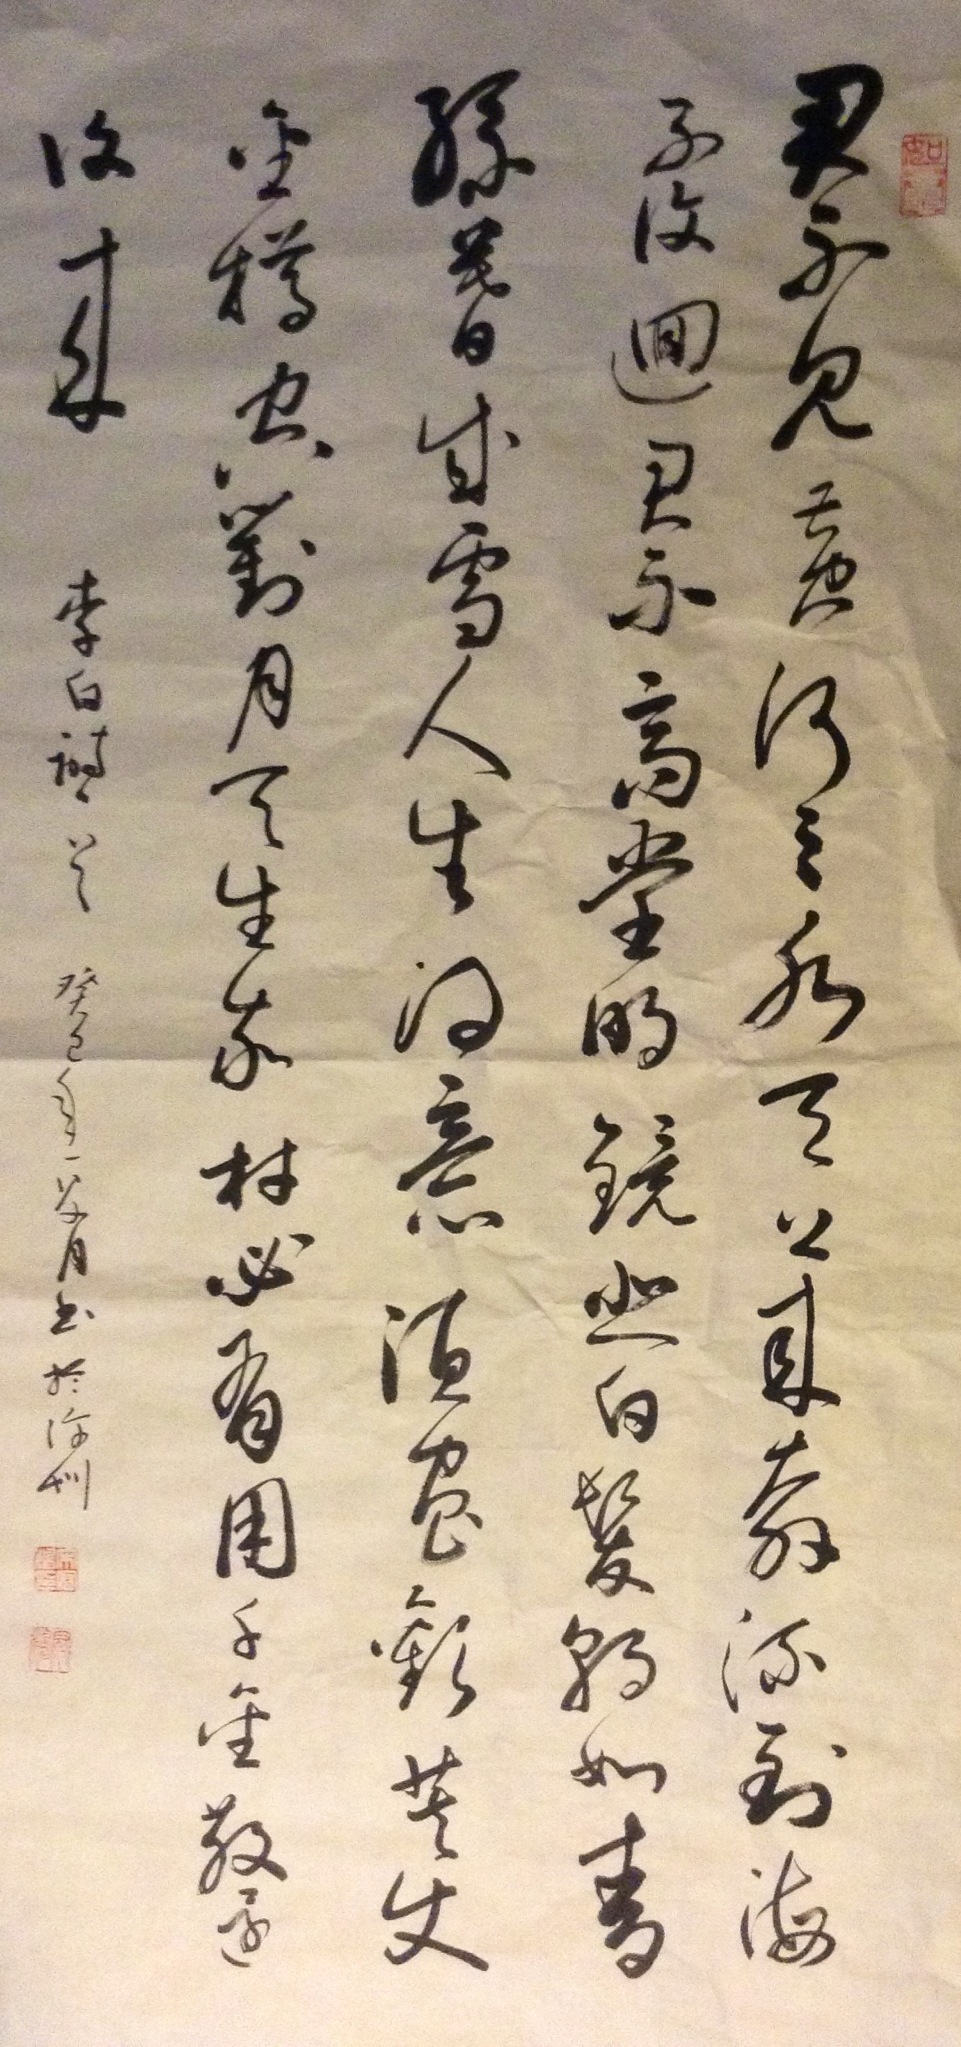 君不見黃河之水天上來奔流到海
不復迴君不高堂明鏡悲白髮朝如青
絲暮成雪人生得意須盡歡莫使
金樽空對月天生我材必有用千金散還
復來
李白詩一首 癸巳年八月書於深圳